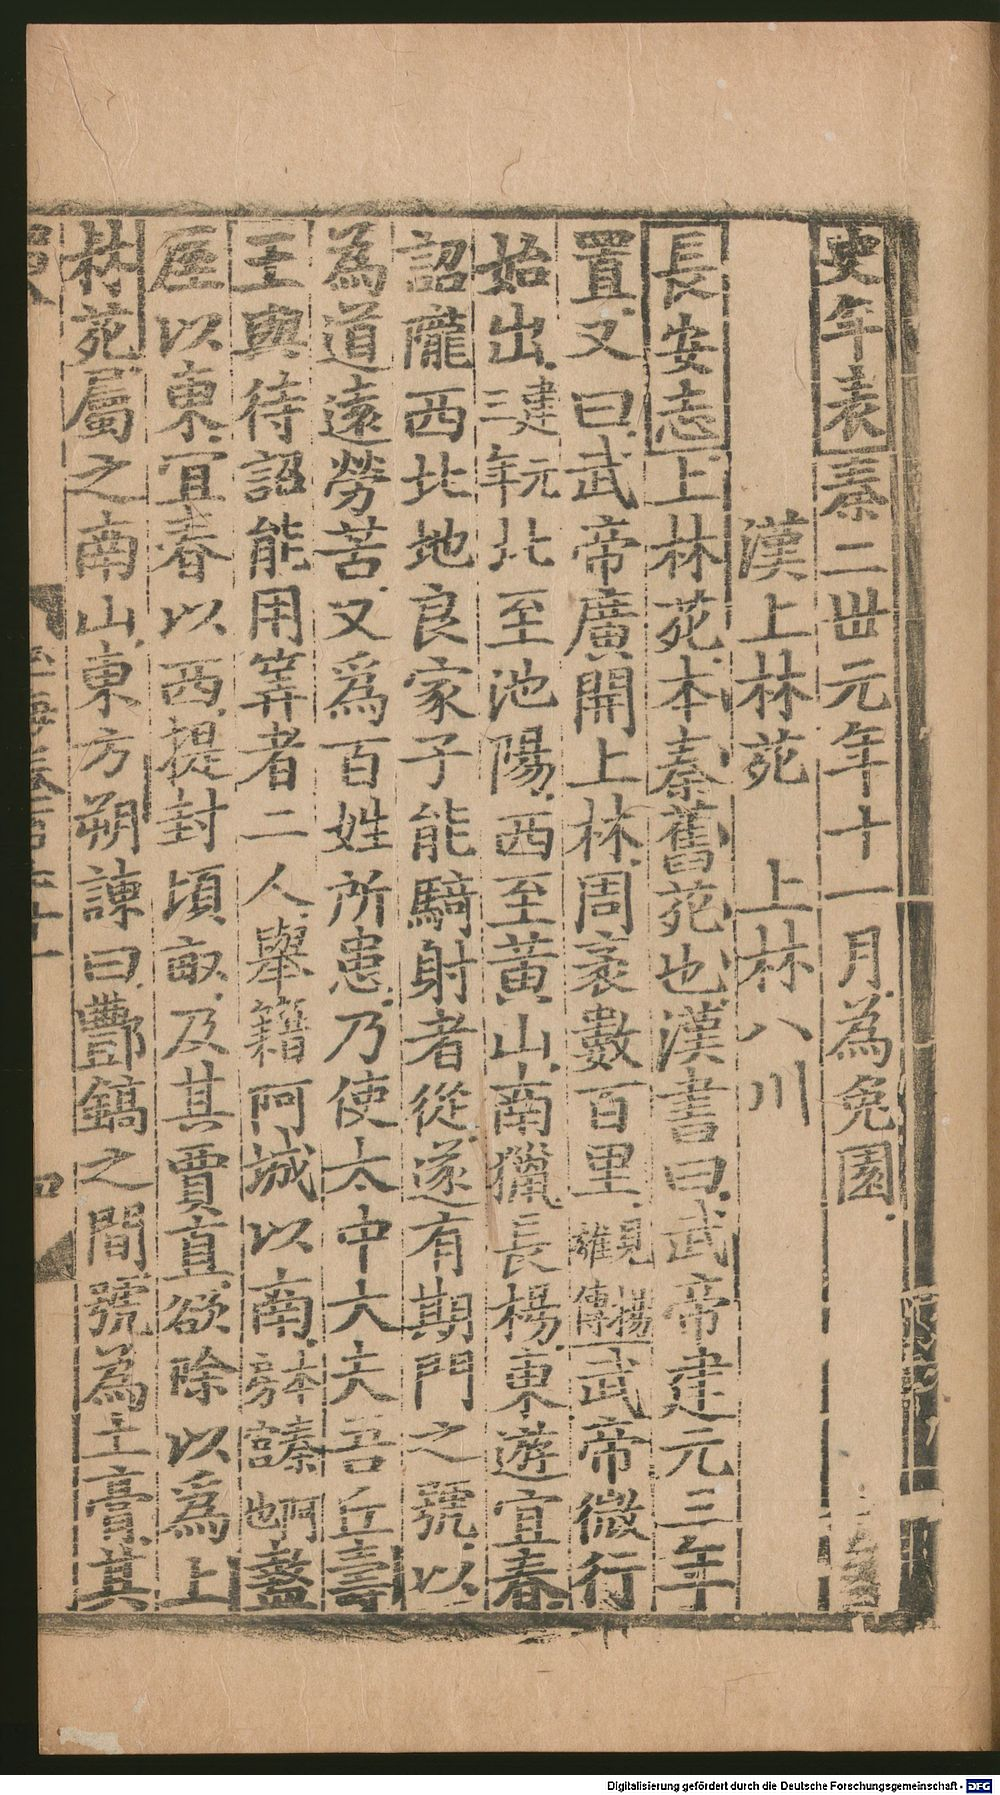 史年表秦二世元年十一月為兔園
漢上林苑　上林八川
長安志上林苑本秦舊苑也漢書曰武帝建元三年
置又曰武帝廣開上林周袤數百里見揚雄傳武帝微行
始出建元三年北至池陽西至黃山南獵長楊東遊宜春
詔隴西北地良家子能騎射者從遂有期門之號以
為道遠勞苦又為百姓所患乃使太中大夫吾丘壽
王與待詔能用筭者二人舉籍阿城以南本秦阿房也盩
厔以東宜春以西提封頃畝及其賈直欲除以為上
林苑屬之南山東方朔諫曰酆鎬之間號為土膏其
四
Digitalisierung gefördert durch die Deutsche Forschungsgemeinschaft - DFG